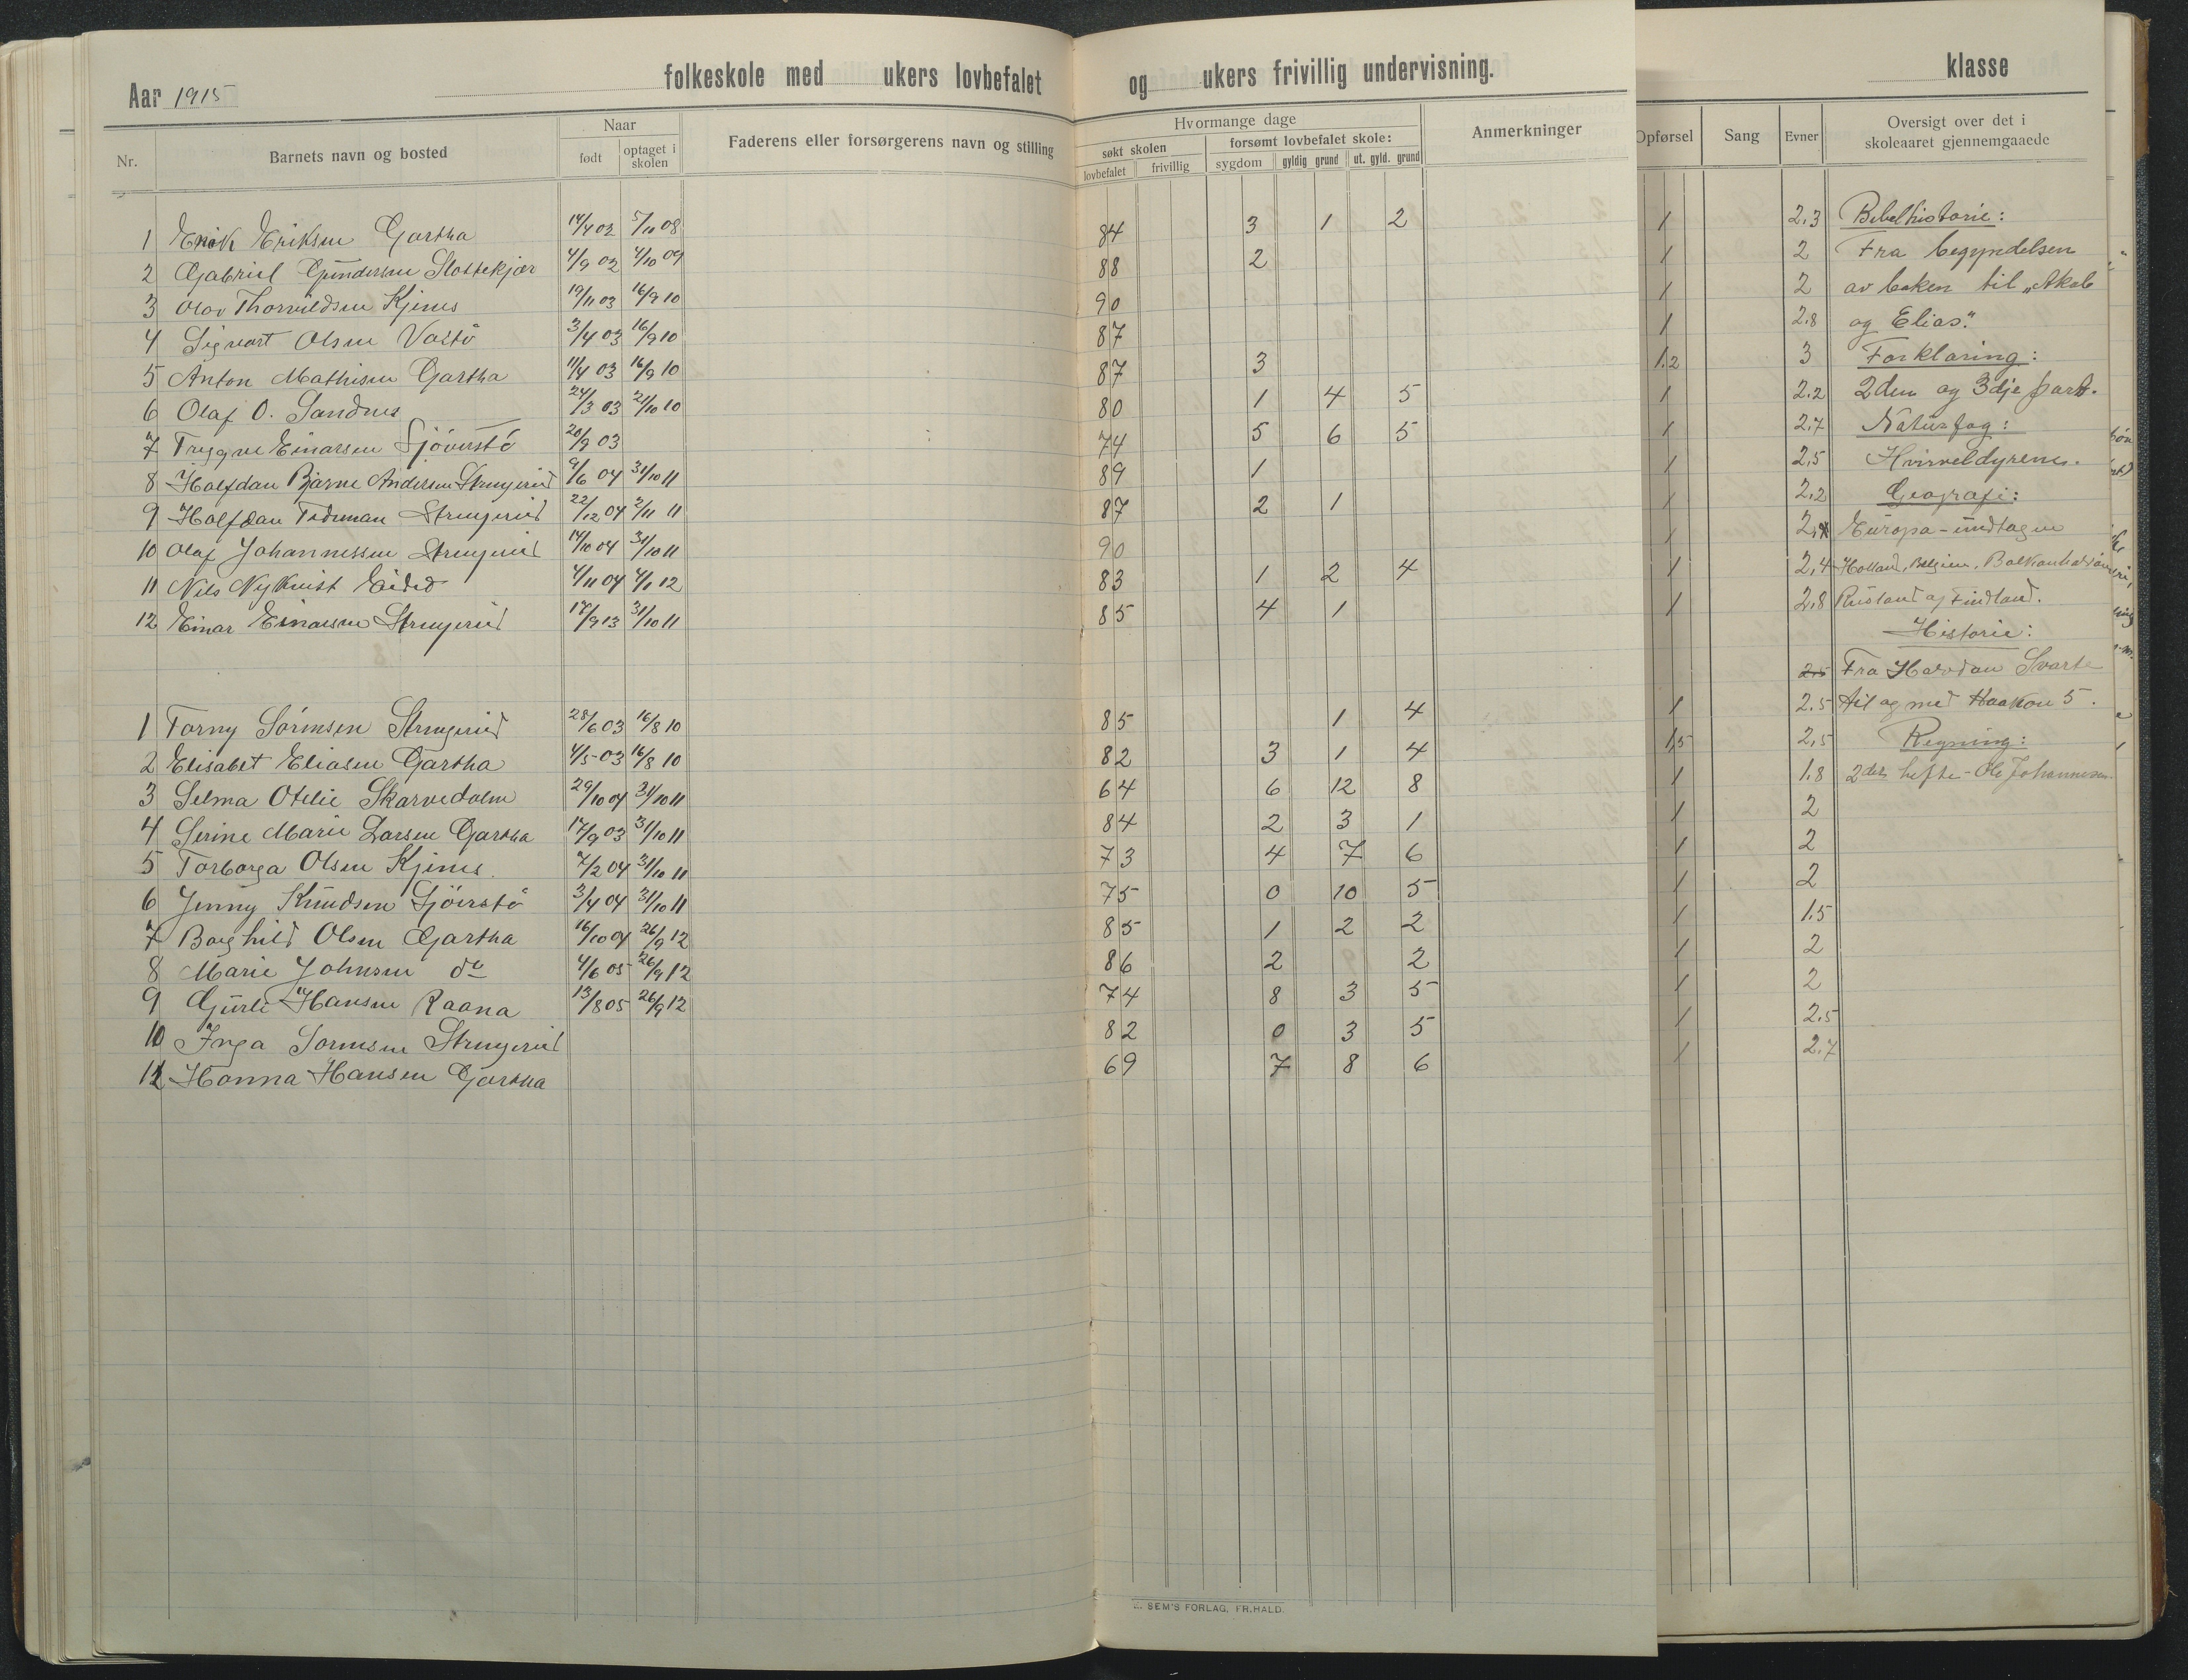 Aar 1915 folkeskole med ukers lovbefalet og ukers frivillig undervisning. klasse
Nr. Barnets navn og bosted Naar født optaget i skolen Faderens eller forsørgerens navn og stilling Hvormange dage søkt skolen lovbefalet frivillig forsømt lovbefalet skole: sygdom gyldig grund ut. gyld. grund Anmerkninger Opførsel Sang Evner Oversigt over det i skoleaaret gjennemgaaede
1 Erik Eriksen Gartha 14/4 02 5/11 08 84 3 1 2 1 2.3 Bibelhistorie:
2 Gabriel Gundersen Slottekjær 4/9 02 4/10 09 88 2 1 2 Fra begyndelsen
3 Olav Thorvaldsen Kjenes 19/11 03 16/9 10 90 1 2 av boken til „Akab
4 Sigvart Olsen Vastö 3/4 03 16/9 10 87 1 2.8 og Elias."
5 Anton Mathisen Gartha 11/4 03 16/9 10 87 3 1.2 3 Forklaring:
6 Olaf O. Sandnes 24/3 03 21/10 10 80 1 4 5 1 2.2 2den og 3dje part.
7 Trygve Einarsen Sjöverstö 20/9 03 74 5 6 5 1 2.7 Naturfag:
8 Halfdan Bjarne Andersen Strengereid 9/6 04 31/10 11 89 1 1 2.5 Hvirveldyrene.
9 Halfdan Tideman Strengereid 22/12 04 2/11 11 87 2 1 1 2.2 Geografi:
10 Olaf Johannessen Strengereid 14/10 04 31/10 11 90 1 Europa - undtagen
11 Nils Nykvist Eided 4/11 04 4/1 12 83 1 2 4 1 2,4 Holland, Belgien, Balkanhalvöen
12 Einar Einarsen Strengereid 17/9 13 31/10 11 85 4 1 1 2.8 Rusland og Finland.
Historie:
2.5 Fra Halvdan Svarte
1 Torny Sörensen Strengereid 28/6 03 16/8 10 85 1 4 1 2.5 til og med Haakon 5.
2 Elisabet Eliasen Gartha 4/5 03 16/8 10 82 3 1 4 1,5 2,5 Regning:
3 Selma Otelie Skarvedalen 29/10 04 31/10 11 64 6 12 8 1 1.8 2det hefte - Ole Johannesen
4 Serine Marie Larsen Gartha 17/9 03 31/10 11 84 2 3 1 1 2
5 Torborga Olsen Kjenes. 7/2 04 31/10 11 73 4 7 6 1 2
6 Jenny Knudsen Sjöverstö 3/4 04 31/10 11 75 0 10 5 1 2
7 Borghild Olsen Gartha 16/10 04 26/9 12 85 1 2 2 1 1.5
8 Marie Johnsen do 4/6 05 26/9 12 86 2 2 1 2
9 Gurli Hansen Raana 13/8 05 26/9 12 74 8 3 5 1 2
10 Inga Sörensen Strengereid 82 0 3 5 1 2.5
11 Hanna Hansen Gartha 69 7 8 6 1 2.7
E. SEM'S FORLAG, FR.HALD.